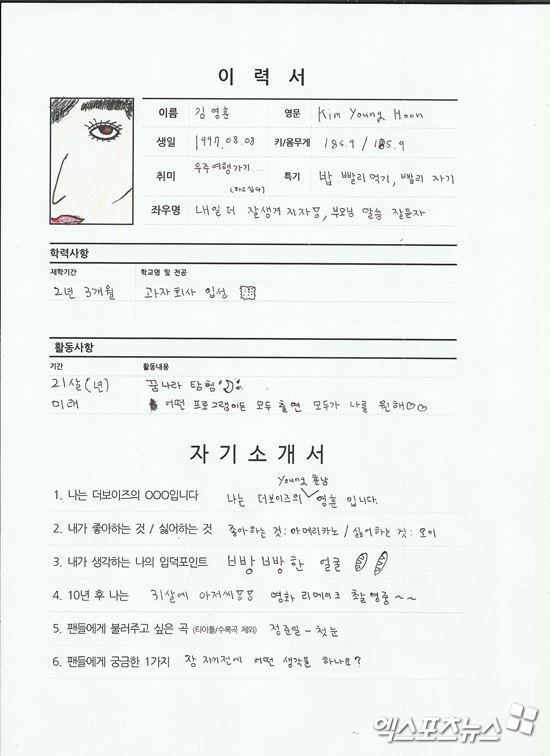 이 력 서
이름 김영훈 영문 Kim Young Hoon
생일 1997.08.08 키/몸무게 186.9 / 185.9
취미 우주여행가기... (하고싶다) 특기 밥 빨리먹기, 빨리 자기
좌우명 내일 더 잘생겨 지자, 부모님 말씀 잘듣자
학력사항
재학기간 학교명 및 전공
2년 3개월 과자회사 입성
활동사항
기간 활동내용
21살(년) 꿈나라 탐험
미래 어떤 프로그램이든 모두 출연 모두가 나를 원해♡♡
자 기 소 개 서
Young 훈남
1. 나는 더보이즈의 OOO입니다 나는 더보이즈의 영훈 입니다.
2. 내가 좋아하는 것 / 싫어하는 것 좋아하는 것: 아메리카노 / 싫어하는 것: 오이
3. 내가 생각하는 나의 입덕포인트 빵빵한 얼굴
4. 10년 후 나는 31살에 아저씨 영화 리메이크 초능영훈~~
5. 팬들에게 불러주고 싶은 곡 (타이틀/수록곡 제외) 정준일 - 첫눈
6. 팬들에게 궁금한 1가지 잠 자기전에 어떤 생각을 하나요?
엑스포츠뉴스